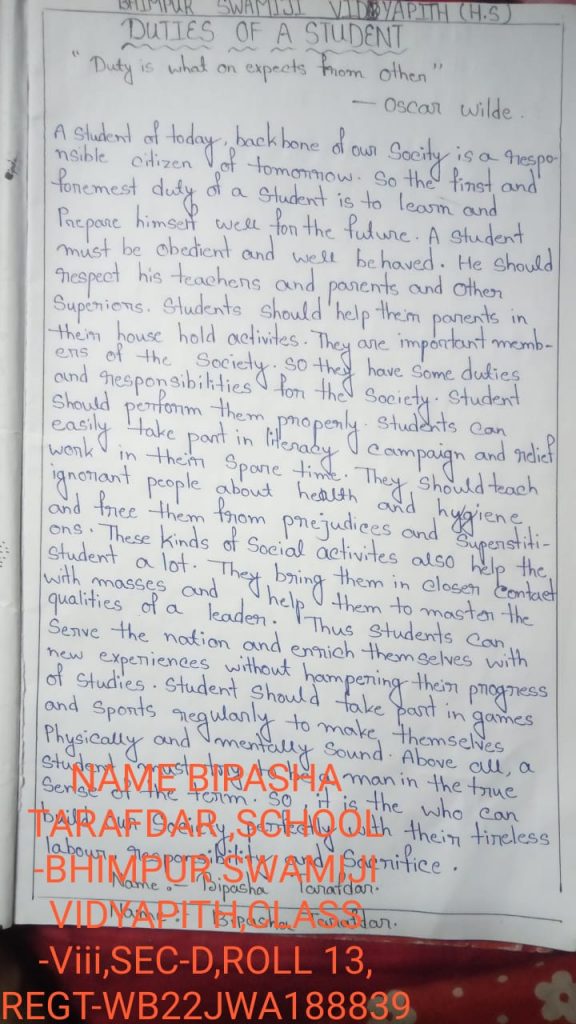 BHIMPUR SWAMIJI VIDYAPITH (H.S)
DUTIES OF A STUDENT
"Duty is what on expects from other"
— Oscar Wilde.
A student of today, backbone of our Socity is a respo-
nsible citizen of tomorrow. So the first and
foremest duty of a student is to learn and
Prepare himself well for the future. A student
must be obedient and well behaved. He should
respect his teachers and parents and other
Superiors. Students should help their parents in
their house hold activites. They are important memb-
ers of the Society. So they have some duties
and responsibilities for the Society. Student
should perform them properly. Students can
easily take part in literacy campaign and relief
work in their spare time. They should teach
ignorant people about health and hygiene
and free them from prejudices and Superstiti-
ons. These kinds of Social activites also help the
student a lot. They bring them in closer contact
with masses and help them to master the
qualities of a leader. Thus students can
Serve the nation and enrich themselves with
new experiences without hampering their progress
of studies. Student should take part in games
and sports regularly to make themselves
Physically and mentally sound. Above all, a
student must try to be a man in the true
Sense of the term. So it is the who can
build our Society perfectly with their tireless
labour, responsibility and Sacrifice.
Name :- Bipasha Tarafdar.
Name :- Bipasha Tarafdar.
NAME BIPASHA
TARAFDAR,SCHOOL
-BHIMPUR SWAMIJI
VIDYAPITH,CLASS
-Viii,SEC-D,ROLL 13,
REGT-WB22JWA188839